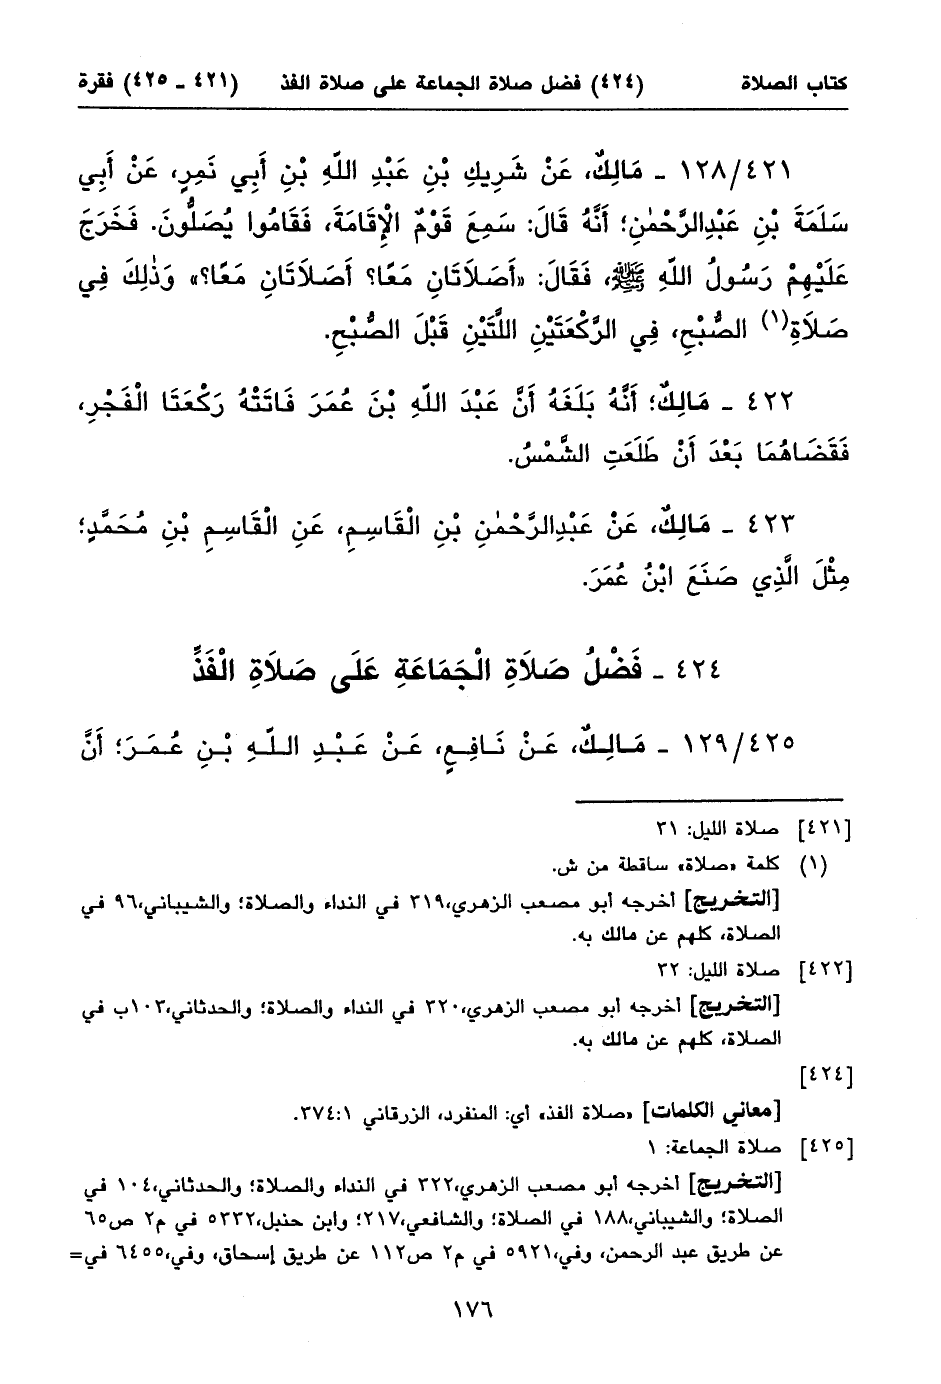 كتاب الصلاة (٤٢٤) فضل صلاة الجماعة على صلاة الفذ (٤٢١ ـ ٤٢٥) فقرة
١٢٨/٤٢١ ـ مَالِكٌ، عَنْ شَرِيكِ بْنِ عَبْدِ اللّهِ بْنِ أَبِي نَمِرٍ، عَنْ أَبِي
سَلَمَةَ بْنِ عَبْدِالرَّحْمٰنِ؛ أَنَّهُ قَالَ: سَمِعَ قَوْمٌ الْإِقَامَةَ، فَقَامُوا يُصَلُّونَ. فَخَرَجَ
عَلَيْهِمْ رَسُولُ اللّهِ ﷺ، فَقَالَ: «أَصَلاَتَانِ مَعًا؟ أَصَلاَتَانِ مَعًا؟» وَذٰلِكَ فِي
صَلاَةِ(١) الصُّبْحِ، فِي الرَّكْعَتَيْنِ اللَّتَيْنِ قَبْلَ الصُّبْحِ.
٤٢٢ ـ مَالِكٌ؛ أَنَّهُ بَلَغَهُ أَنَّ عَبْدَ اللّهِ بْنَ عُمَرَ فَاتَتْهُ رَكْعَتَا الْفَجْرِ،
فَقَضَاهُمَا بَعْدَ أَنْ طَلَعَتِ الشَّمْسُ.
٤٢٣ ـ مَالِكٌ، عَنْ عَبْدِالرَّحْمٰنِ بْنِ الْقَاسِمِ، عَنِ الْقَاسِمِ بْنِ مُحَمَّدٍ؛
مِثْلَ الَّذِي صَنَعَ ابْنُ عُمَرَ.
٤٢٤ ـ فَضْلُ صَلاَةِ الْجَمَاعَةِ عَلَى صَلاَةِ الْفَذِّ
١٢٩/٤٢٥ ـ مَالِكٌ، عَنْ نَافِعٍ، عَنْ عَبْدِ اللّهِ بْنِ عُمَرَ؛ أَنَّ
[٤٢١] صلاة الليل: ٣١
(١) كلمة «صلاة» ساقطة من ش.
[التخريج] أخرجه أبو مصعب الزهري،٣١٩ في النداء والصلاة؛ والشيباني،٩٦ في
الصلاة، كلهم عن مالك به.
[٤٢٢] صلاة الليل: ٣٢
[التخريج] أخرجه أبو مصعب الزهري،٣٢٠ في النداء والصلاة؛ والحدثاني،١٠٣ب في
الصلاة، كلهم عن مالك به.
[٤٢٤]
[معاني الكلمات] «صلاة الفذ» أي: المنفرد، الزرقاني ٣٧٤:١.
[٤٢٥] صلاة الجماعة: ١
[التخريج] أخرجه أبو مصعب الزهري،٣٢٢ في النداء والصلاة؛ والحدثاني،١٠٤ في
الصلاة؛ والشيباني،١٨٨ في الصلاة؛ والشافعي،٢١٧؛ وابن حنبل،٥٣٣٢ في م٢ ص٦٥
عن طريق عبد الرحمن، وفي،٥٩٢١ في م٢ ص١١٢ عن طريق إسحاق، وفي،٦٤٥٥ في=
١٧٦